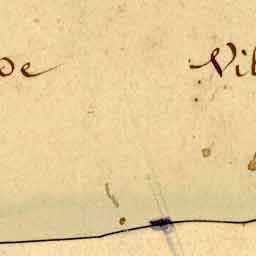 de Vil